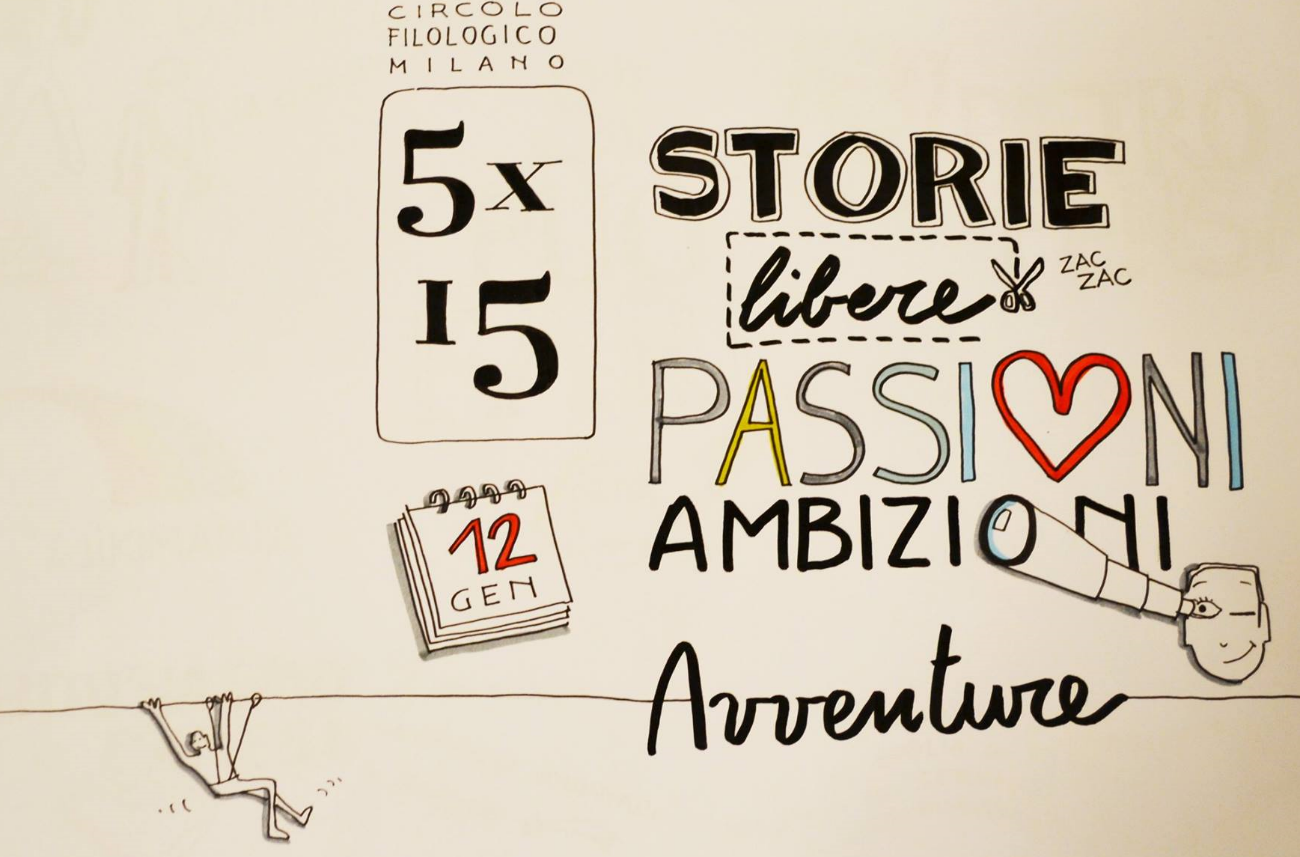 CIRCOLO
FILOLOGICO
MILANO
5x
15
12
GEN
STORIE
libere
ZAC
ZAC
PASSIONI
AMBIZIONI
Avventure